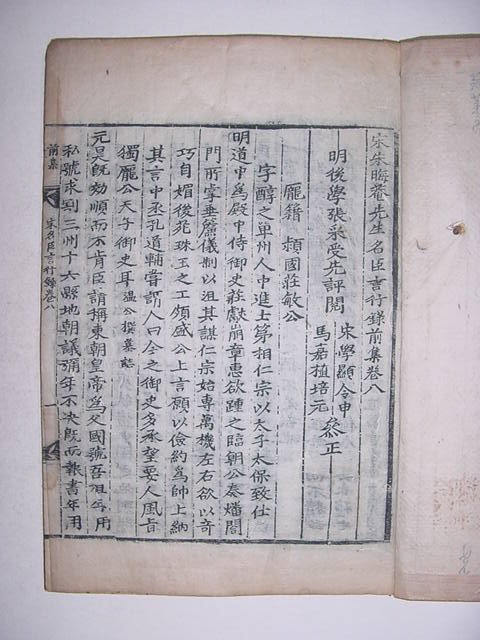 宋朱晦菴先生名臣言行錄前集卷八
明後學張采受先評閱
宋學顯令申
馬嘉植培元
叅正
龎籍 頴國莊敏公
字醇之單州人中進士第相仁宗以太子太保致仕
明道中爲殿中侍御史莊獻崩章惠欲踵之臨朝公奏燔閤
門所掌垂簾儀制以沮其謀仁宗始專萬機左右欲以奇
巧自媚後苑珠玉之工頗盛公上言願以儉約爲師上納
其言中丞孔道輔嘗謂人曰今之御史多承望要人風旨
獨龎公天子御史耳 溫公撰墓誌
元昊旣効順而不肯臣請稱東朝皇帝爲父國號吾祖年用
私號求割三州十六縣地朝議彌年不決旣而報書年用
前集
宋名臣言行錄卷八
一